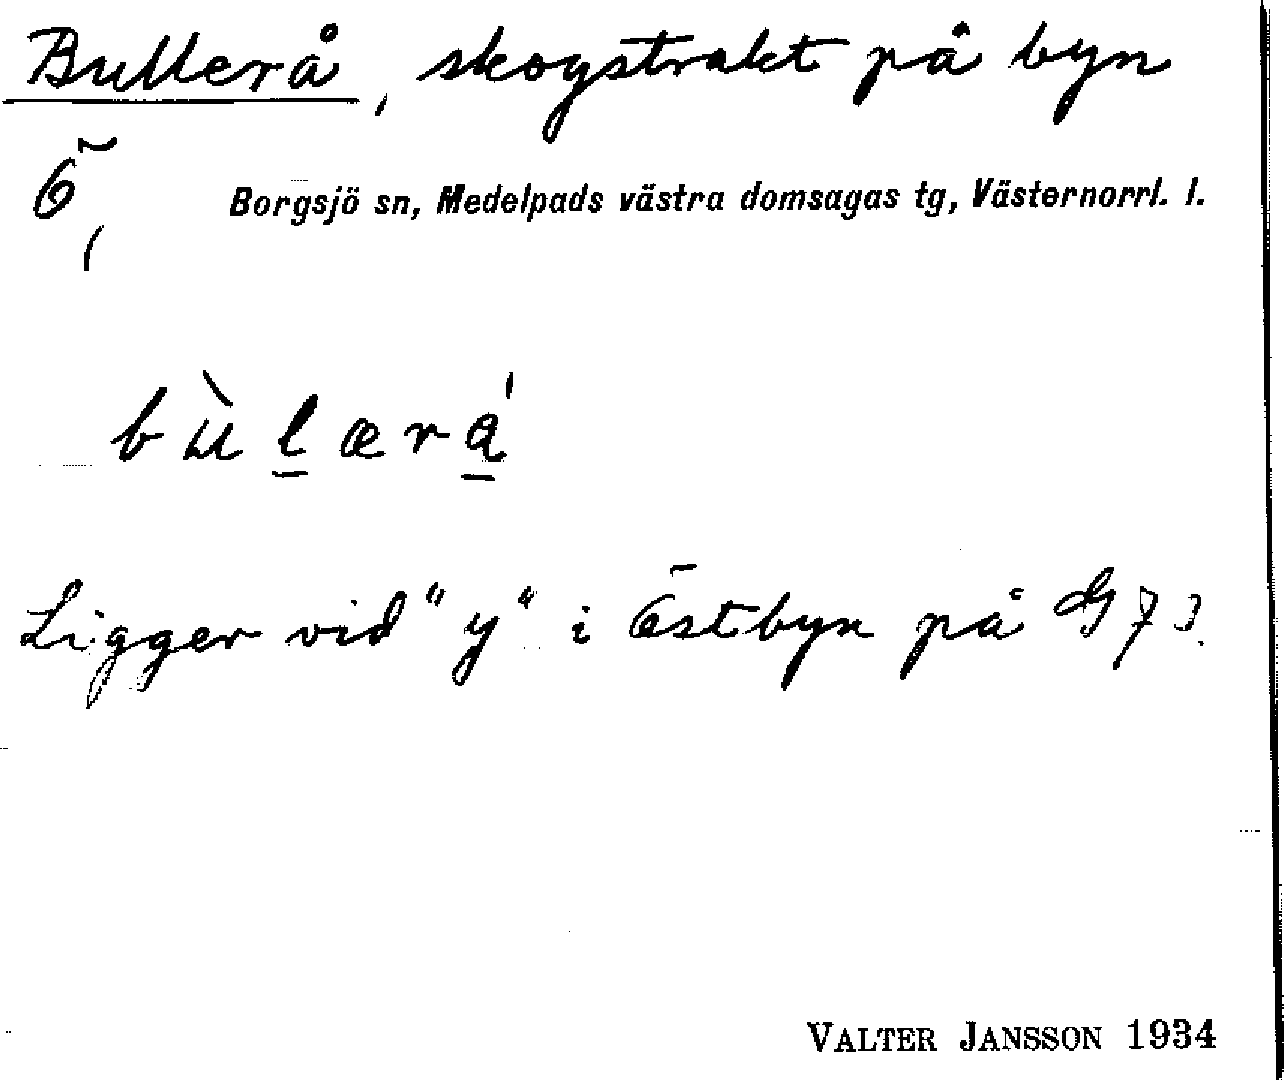 Bullerå, skogstrakt på byn
Ö,
Borgsjö sn, Medelpads västra domsagas tg, Västernorrl. l.
bùlæra̍
Ligger vid "y" i Östbyn på G73.
VALTER JANSSON 1934